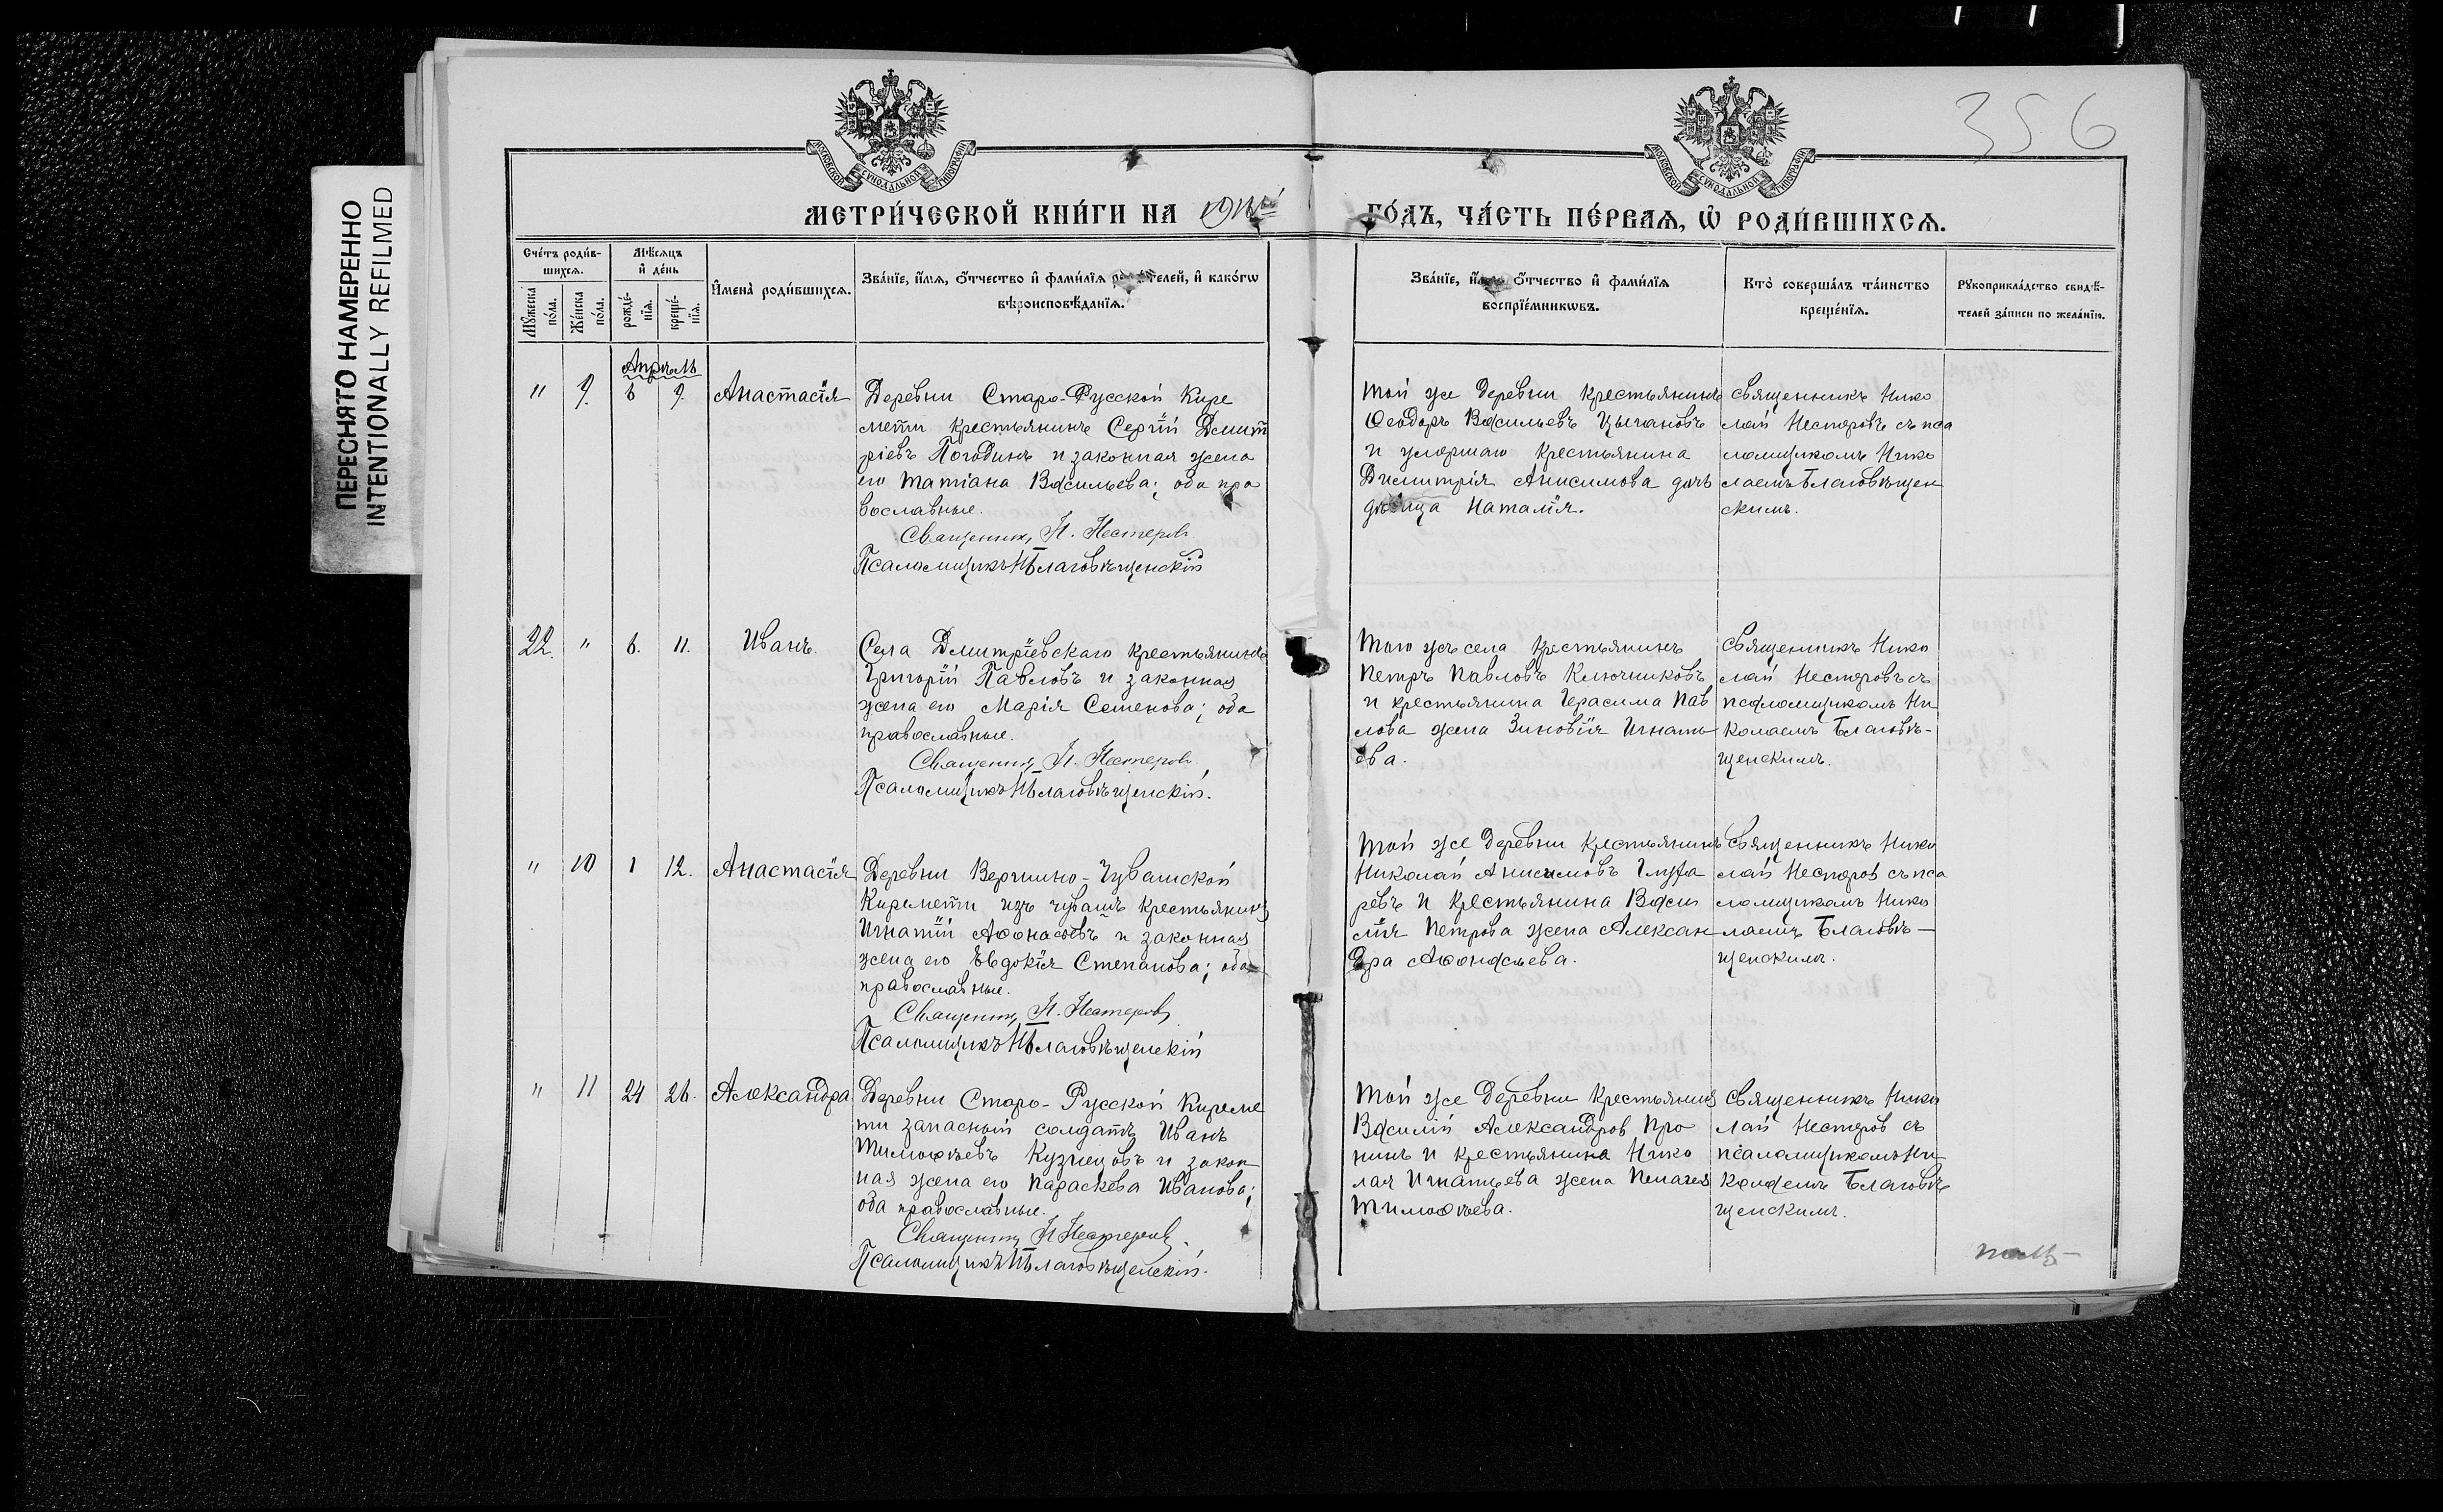 356
ПЕРЕСНЯТО НАМЕРЕННО
INTENTIONALLY REFILMED
МОСКОВСКОЙ СѴНОДАЛЬНОЙ ТИПОГРАФІИ
МОСКОВСКОЙ СѴНОДАЛЬНОЙ ТИПОГРАФІИ
МЕТРИ́ЧЕСКОЙ КНИ́ГИ НА
ГО́ДЪ, ЧА́СТЬ ПЕ́РВАѦ, Ѡ҆ РОДИ́ВШИХСѦ.
Сче́тъ роди́в-
шихсѧ.
Мѣ́сѧцъ
и҆ де́нь
Мꙋ́жеска
по́ла.
Же́нска
по́ла.
рожде́-
нїѧ.
креще́-
нїѧ.
И҆мена̀ роди́вшихсѧ.
Зва́нїе, и҆́мѧ, ѻ҆́тчество и҆ фами́лїѧ роди́телей, и҆ како́гѡ
вѣроисповѣ́данїѧ.
Зва́нїе, и҆́мѧ, ѻ҆́тчество и҆ фами́лїѧ
воспрїе́мникѡвъ.
Кто̀ соверша́лъ та́инство
креще́нїѧ.
Рꙋкоприкла́дство свидѣ́-
телей за́писи по жела́нїю.
Апрѣль
" 9. 6 9. Анастасія
Деревни Старо-Русской Кире
мети крестьянинъ Сергій Дмит
ріевъ Погодинъ и законная жена
его Татіана Васильева; оба пра
вославные.
Священникъ Н. Нестеровъ
Псаломщикъ Н Благовѣщенскій
Той же деревни крестьянинъ
Ѳеодоръ Васильевъ Цыгановъ
и умершаго крестьянина
Димитрія Анисимова дочь
дѣвица Наталія.
священникъ Нико
лай Нестеровъ съ пса
ломщикомъ Нико
лаемъ Благовѣщен
скимъ.
22. " 6. 11. Иванъ.
Села Дмитріевскаго крестьянинъ
Григорій Павловъ и законная
жена его Марія Семенова; оба
православные.
Священникъ Н. Нестеровъ
Псаломщикъ Н Благовѣщенскій.
Того жъ села крестьянинъ
Петръ Павловъ Ключниковъ
и крестьянина Герасима Пав
лова жена Зиновія Игнать
ева.
священникъ Нико
лай Нестеровъ съ
псаломщикомъ Ни
колаемъ Благовѣ-
щенскимъ.
" 10 1 12. Анастасія
Деревни Вершино-Чувашской
Киремети изъ чувашъ крестьянинъ
Игнатій Аѳонасьевъ и законная
жена его Евдокія Степанова; оба
православные.
Священникъ Н. Нестеровъ
Псаломщикъ Н Благовѣщенскій
Той же деревни крестьянинъ
Николай Анисимовъ
ревъ и крестьянина Васи
лія Петрова жена Алексан
дра Аѳонасьева.
священникъ Нико
лай Нестеровъ съ пса
ломщикомъ Нико
лаемъ Благовѣ-
щенскимъ.
" 11 24 26. Александра
Деревни Старо-Русской Киреме
ти запасный солдатъ Иванъ
Тимоѳѣевъ Кузнецовъ и закон
ная жена его Параскева Иванова;
оба православные.
Священникъ Н Нестеровъ.
Псаломщикъ Н Благовѣщенскій.
Той же деревни крестьянинъ
Василій Александров Про
нинъ и крестьянина Нико
лая Игнатьева жена Пелагея
Тимоѳѣева.
священникъ Нико
лай Нестеров съ
псаломщикомъ Ни
колаемъ Благовѣ
щенскимъ.